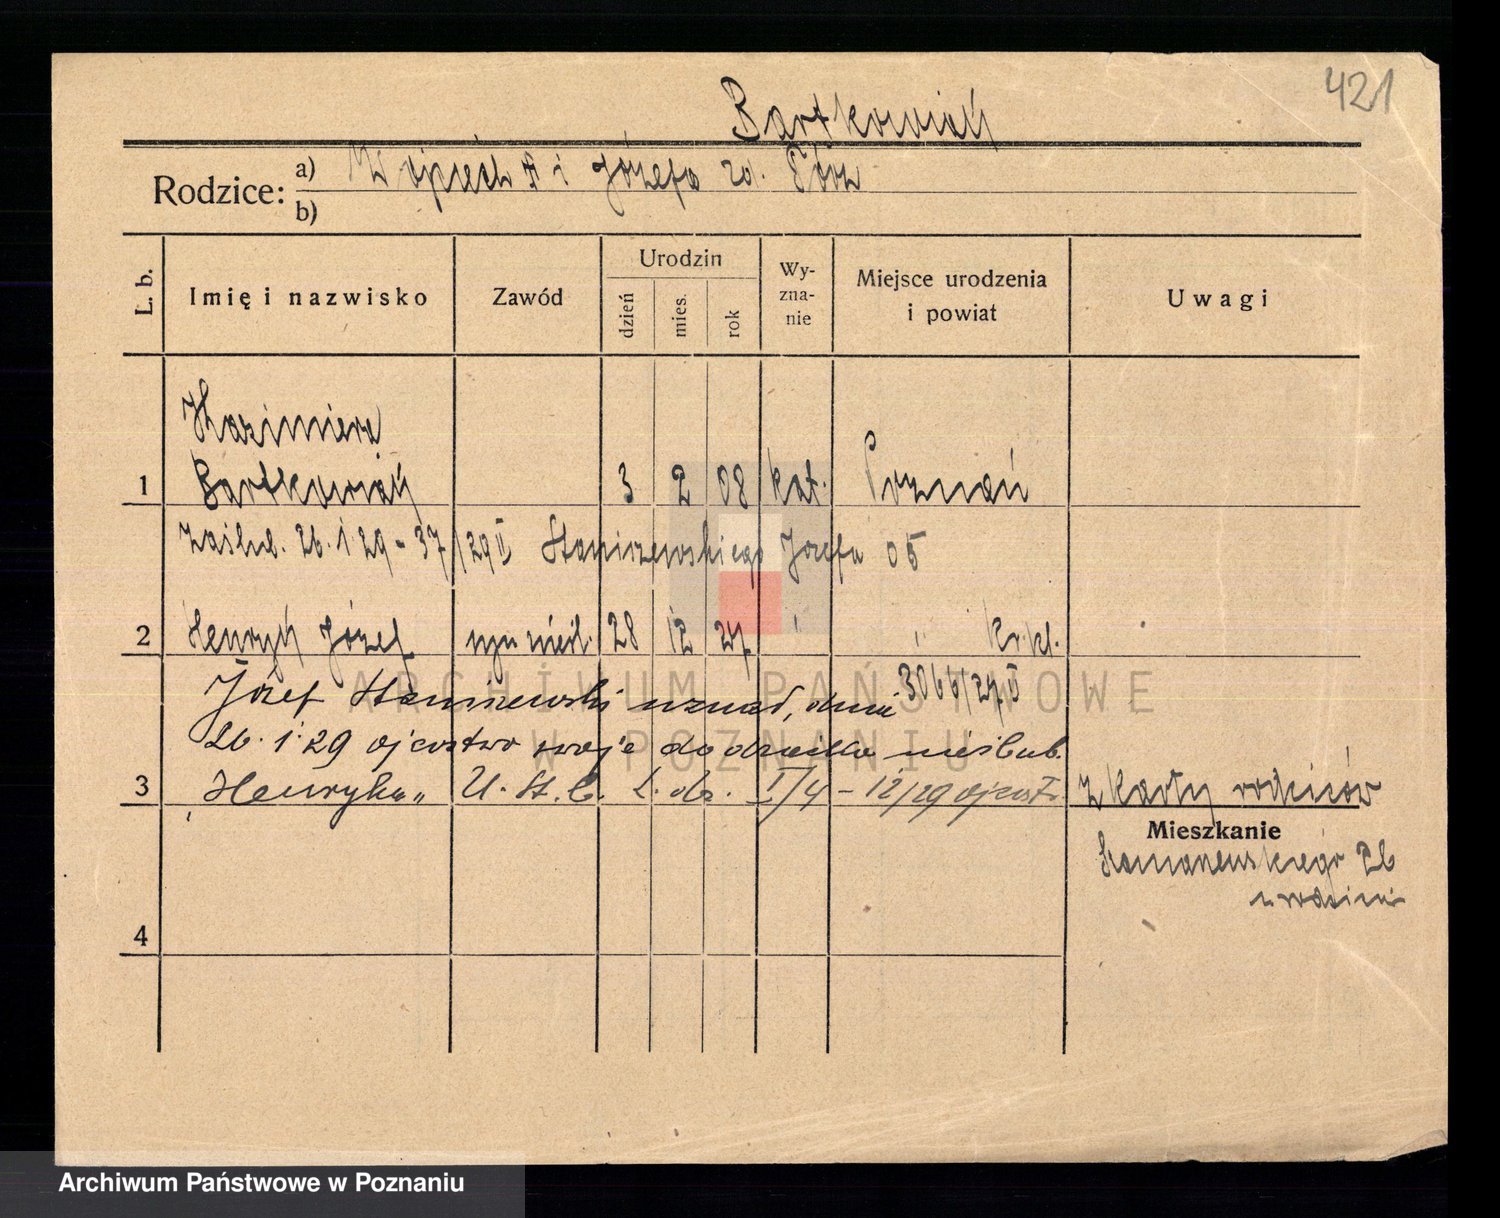 421
Bartkowiak
Rodzice: a) Wojciech † i Józefa zd.
b)
L. b.
Imię i nazwisko
Zawód
Urodzin
dzień
mies.
rok
Wy-
zna-
nie
Miejsce urodzenia
i powiat
Uwagi
Kazimiera
1 Bartkowiak 3 2 08 kat. Poznań
Zaślub. 26.1.29 - 37/29 II Staniszewskiego Józefa 05
2 Henryk Józef syn nieśl. 28 12 27 " " Kr. kl.
3066/27 II
Józef Staniszewski uznał, dnia
26.1.29 ojcostwo swoje do dziecka nieślub.
3 "Henryka" U. St. C. L. dz. I/4 - 12/29 ojcost. z karty rodziców
Mieszkanie
26
4
ARCHIWUM PAŃSTWOWE
W POZNANIU
Archiwum Państwowe w Poznaniu